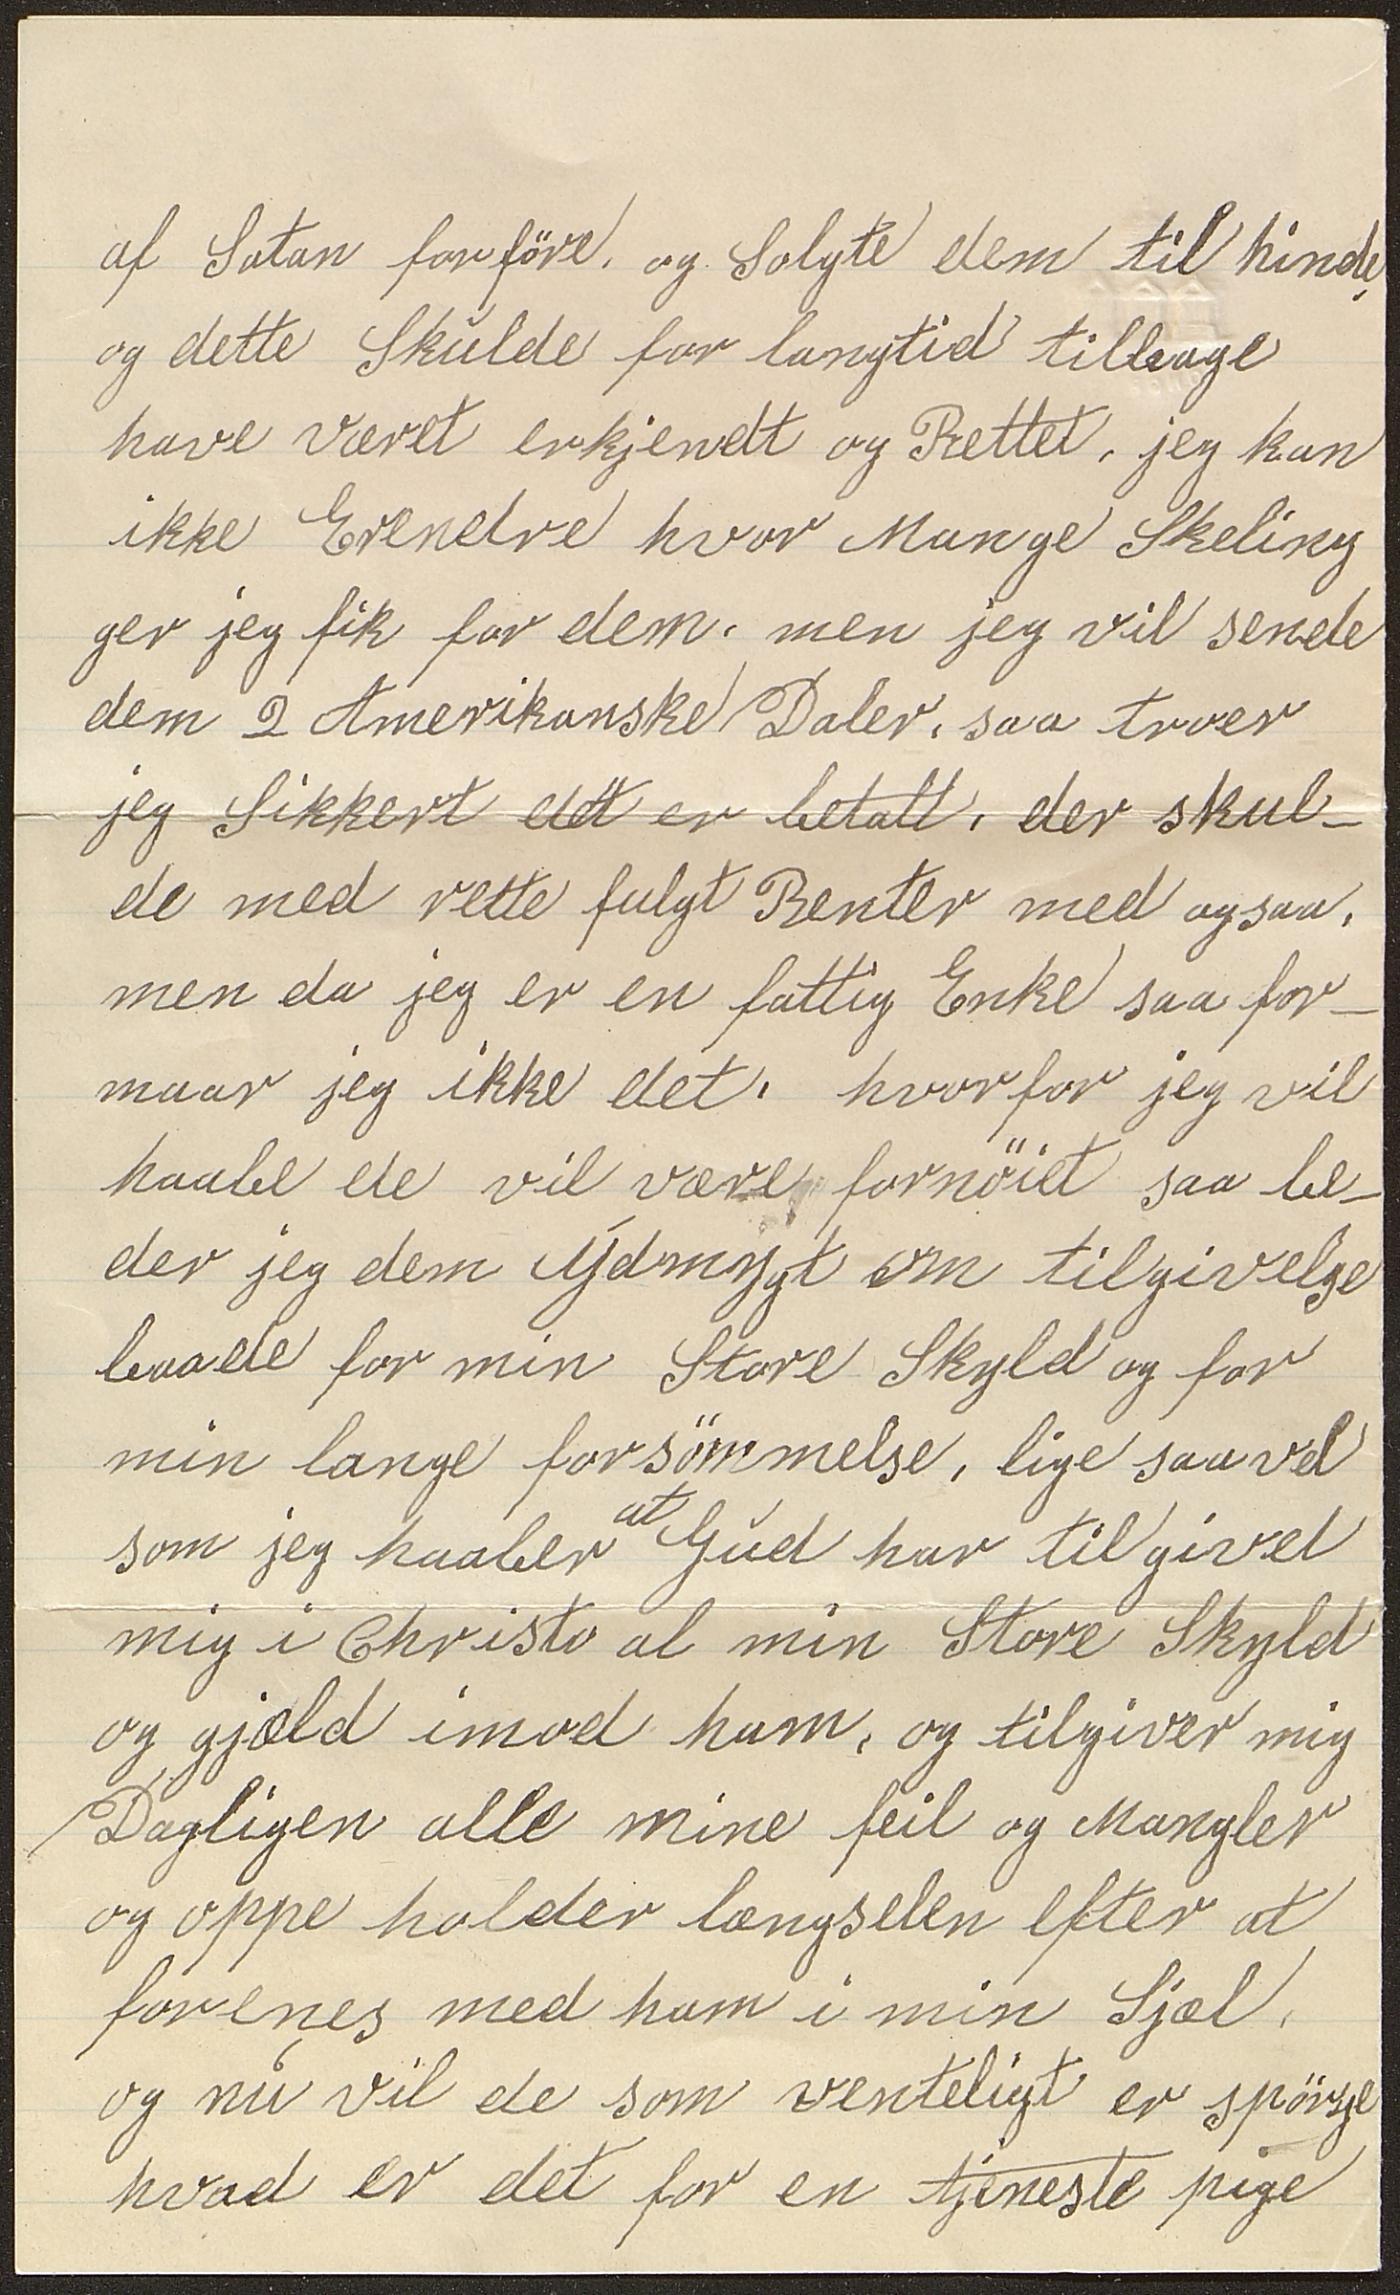 af Satan forföre. og Solgte dem til hinde,
og dette Skulde for langtid tilbage
have Været erkjendt og Rettet, jeg kan
ikke Erendre hvor Mange Skeling
ger jeg fik for dem. men jeg vil sende
dem 2 Amerikanske Daler, saa troer
jeg Sikkert det er betalt, der skul-
de med rette fulgt Renter med ogsaa,
men da jeg er en fattig Enke saa for-
maar jeg ikke det. hvorfor jeg vil
haabe de vil være fornöiet saa be-
der jeg dem Ydmygt om tilgivelse
baade for min Store Skyld og for
min lange forsömmelse, lige saa vel
som jeg haaber at Gud har tilgivet
mig i Christo al min Store Skyld
og gjæld imod ham, og tilgiver mig
Dagligen alle mine feil og Mangler
og oppe holder længselen efter at
forenes med ham i min Sjæl.
og nu vil de som venteligt er spörge
hvad er det for en tjeneste pige